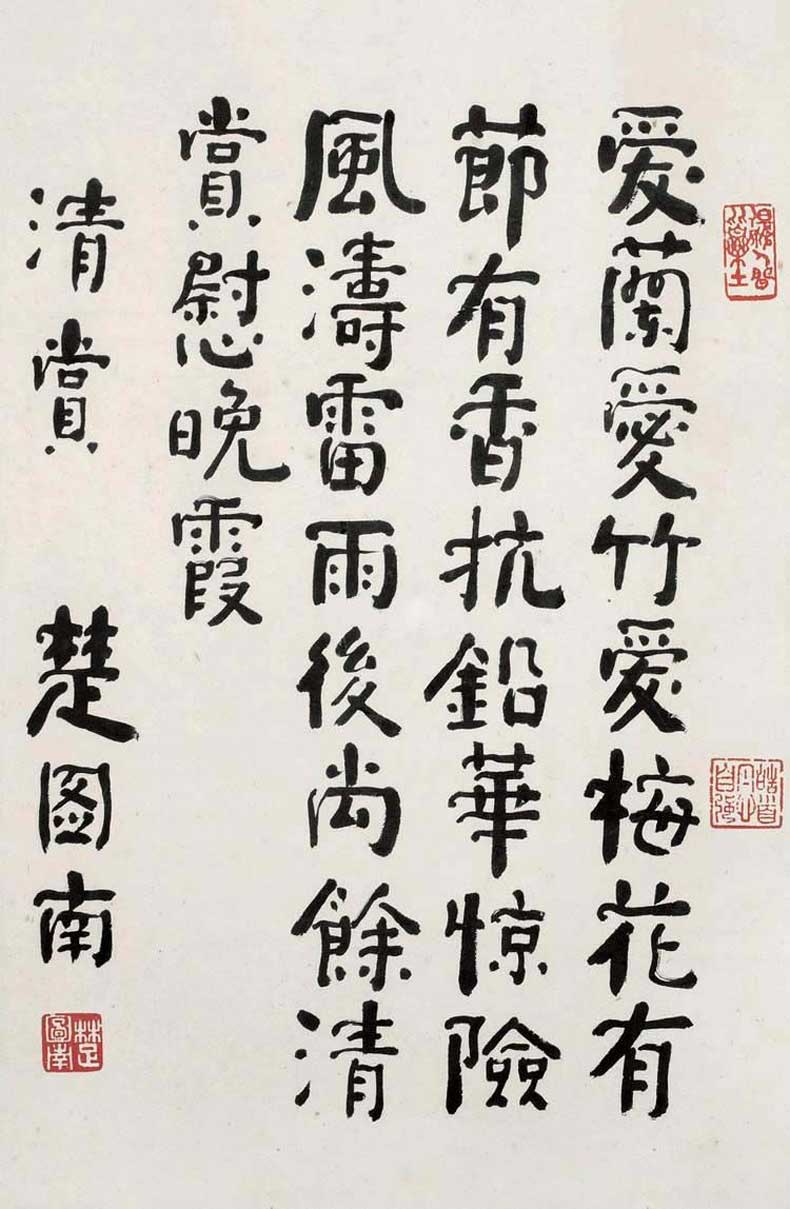 爱蘭愛竹爱梅花有
莭有香抗鉛華惊險
風濤雷雨後尚餘清
賞慰晚霞
清賞 楚图南
楚圖南